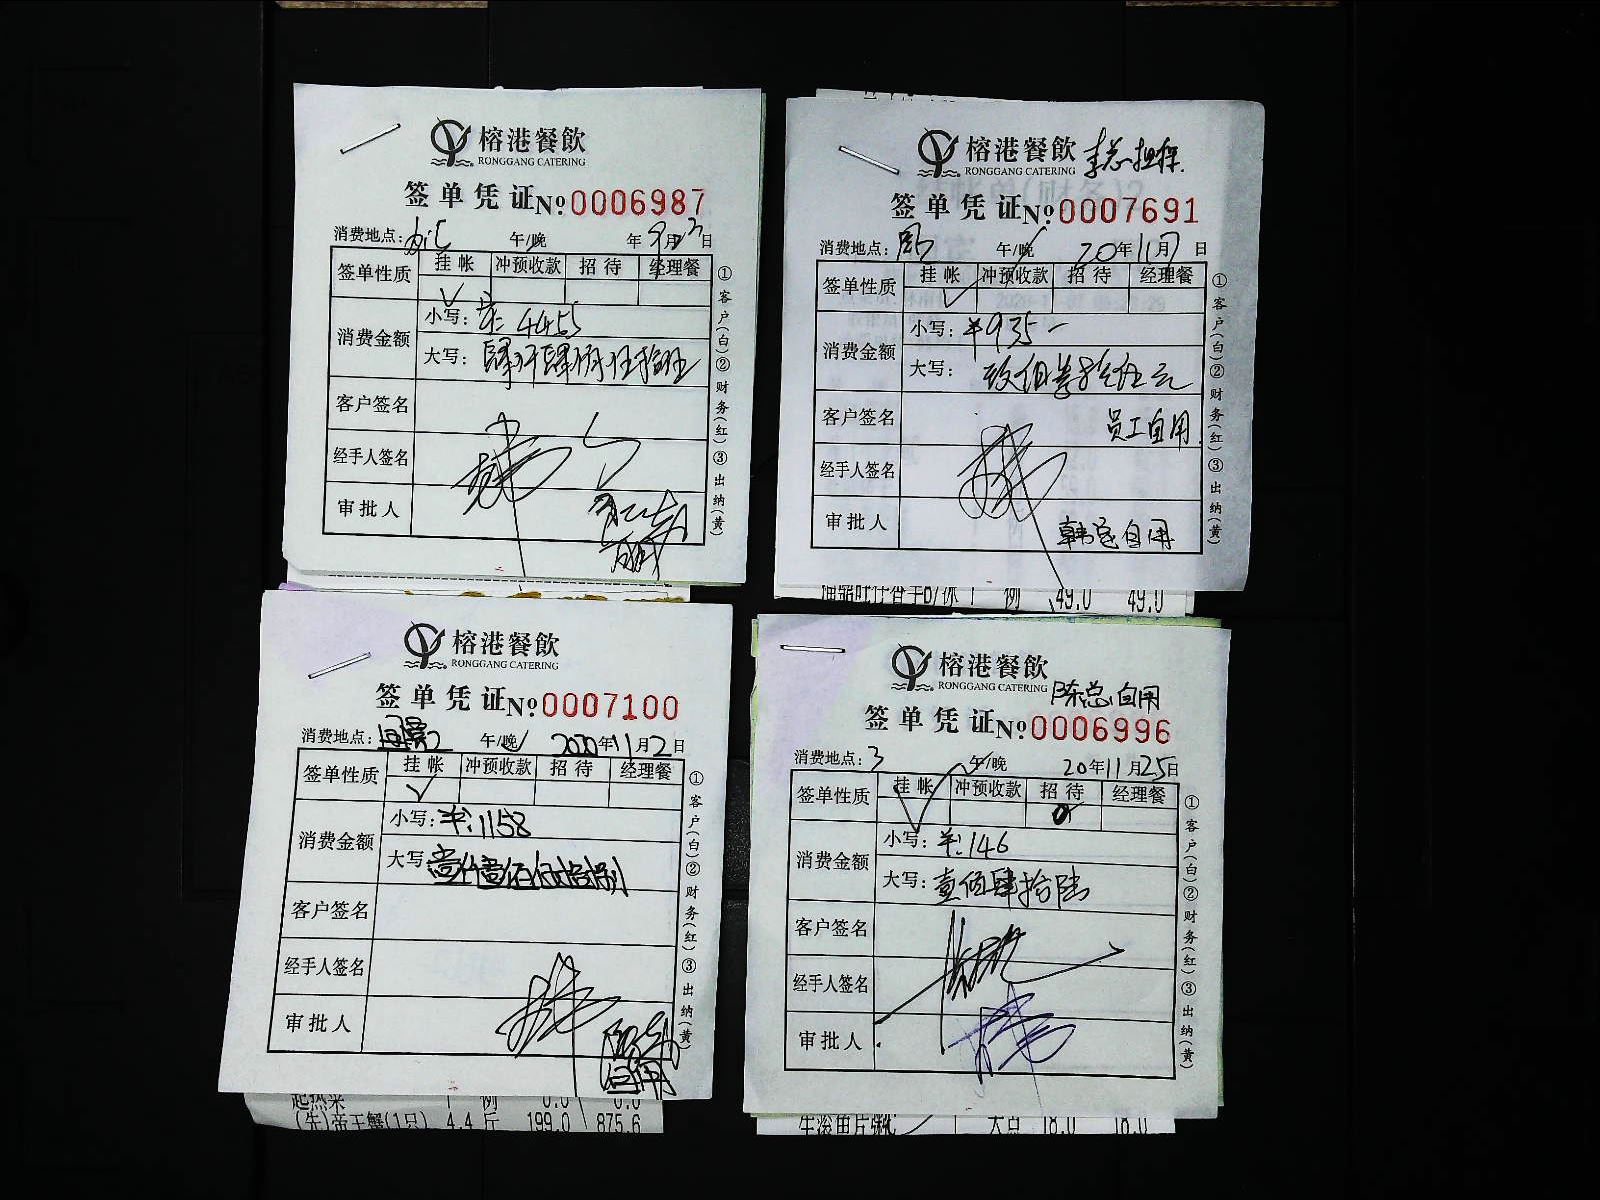 榕港餐飲
RONGGANG CATERING
签单凭证 № 0006987
消费地点： 午/晚 年9月23日
签单性质 挂帐 冲预收款 招待 经理餐
消费金额 小写： 4455
大写：肆仟肆佰伍拾伍
客户签名
经手人签名
审批人
①客户(白)②财务(红)③出纳(黄)
榕港餐飲 李总担保
RONGGANG CATERING
签单凭证 № 0007691
消费地点： 午/晚 20年11月7日
签单性质 挂帐 冲预收款 招待 经理餐
消费金额 小写：¥935一
大写：玖佰叁拾伍元
客户签名 员工自用
经手人签名
审批人 韩总自用
①客户(白)②财务(红)③出纳(黄)
例 49.0 49.0
榕港餐飲
RONGGANG CATERING
签单凭证 № 0007100
消费地点： 午/晚 2020年11月2日
签单性质 挂帐 冲预收款 招待 经理餐
消费金额 小写：¥:1158
大写：壹仟壹佰伍拾捌
客户签名
经手人签名
审批人
自用
①客户(白)②财务(红)③出纳(黄)
起热菜 1 例 0.0 0.0
(先)帝王蟹(1只) 4.4 斤 199.0 875.6
榕港餐飲
RONGGANG CATERING 陈总自用
签单凭证 № 0006996
消费地点：3 午/晚 20年11月25日
签单性质 挂帐 冲预收款 招待 经理餐
消费金额 小写：¥:146
大写：壹佰肆拾陆
客户签名
经手人签名
审批人
①客户(白)②财务(红)③出纳(黄)
大点 18.0 18.0